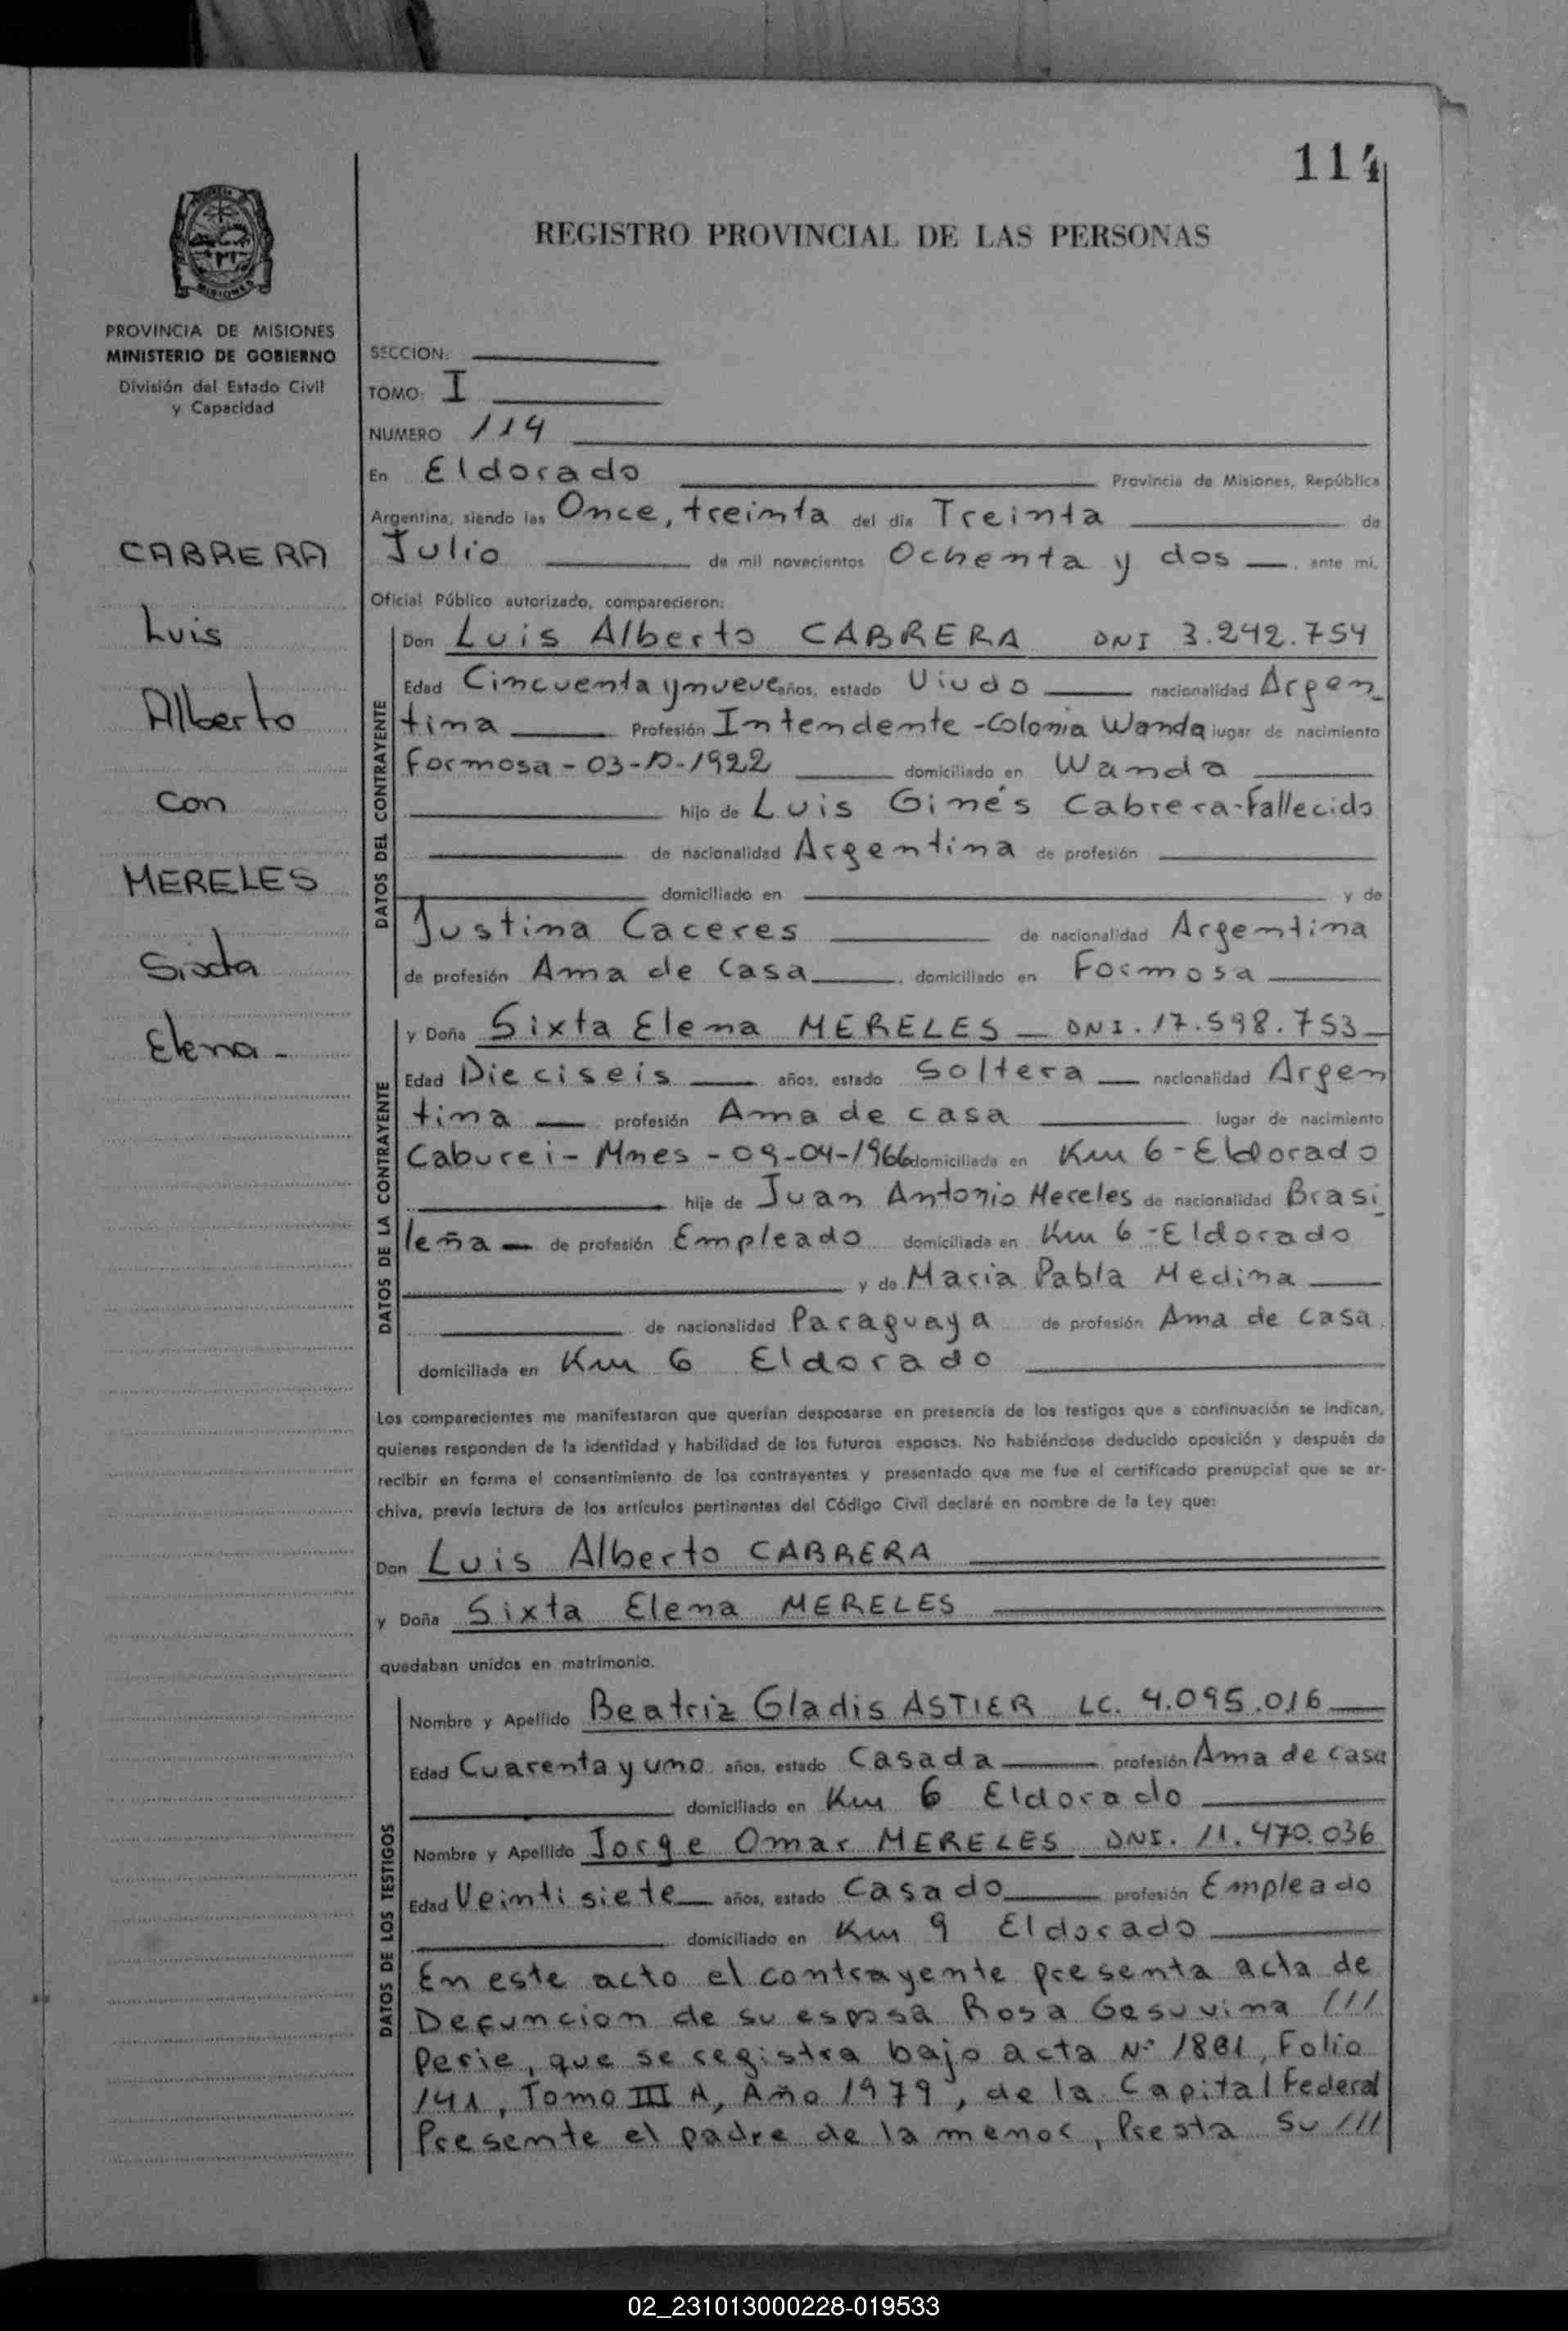 114
REGISTRO PROVINCIAL DE LAS PERSONAS
MISIONES
PROVINCIA DE MISIONES
MINISTERIO DE GOBIERNO
División del Estado Civil
y Capacidad
CABRERA
Luis
Alberto
con
MERELES
Sixta
Elena -
SECCION:
TOMO: I
NUMERO 114
En Eldorado Provincia de Misiones, República
Argentina, siendo las Once, treinta del día Treinta de
Julio de mil novecientos Ochenta y dos —, ante mí,
Oficial Público autorizado, comparecieron:
DATOS DEL CONTRAYENTE
Don Luis Alberto CABRERA DNI 3.242.754
Edad Cincuenta y nueve años, estado Viudo nacionalidad Argen_
tina Profesión Intendente - Colonia Wanda lugar de nacimiento
Formosa - 03-10-1922 domiciliado en Wanda
hijo de Luis Ginés Cabrera - Fallecido
de nacionalidad Argentina de profesión
domiciliado en y de
Justina Caceres de nacionalidad Argentina
de profesión Ama de Casa, domiciliado en Formosa
DATOS DE LA CONTRAYENTE
y Doña Sixta Elena MERELES — DNI. 17.598.753
Edad Dieciseis años, estado Soltera — nacionalidad Argen
tina — profesión Ama de casa lugar de nacimiento
Caburei - Mnes - 09-04-1966 domiciliada en Km 6 - Eldorado
hija de Juan Antonio Mereles de nacionalidad Brasi_
leña — de profesión Empleado domiciliada en Km 6 - Eldorado
y de Maria Pabla Medina
de nacionalidad Paraguaya de profesión Ama de Casa
domiciliada en Km 6 Eldorado
Los comparecientes me manifestaron que querían desposarse en presencia de los testigos que a continuación se indican,
quienes responden de la identidad y habilidad de los futuros esposos. No habiéndose deducido oposición y después de
recibir en forma el consentimiento de los contrayentes y presentado que me fue el certificado prenupcial que se ar-
chiva, previa lectura de los artículos pertinentes del Código Civil declaré en nombre de la Ley que:
Don Luis Alberto CABRERA
y Doña Sixta Elena MERELES
quedaban unidos en matrimonio.
DATOS DE LOS TESTIGOS
Nombre y Apellido Beatriz Gladis ASTIER LC. 4.095.016
Edad Cuarenta y uno años, estado Casada profesión Ama de casa
domiciliado en Km 6 Eldorado
Nombre y Apellido Jorge Omar MERELES DNI. 11.470.036
Edad Veintisiete años, estado Casado profesión Empleado
domiciliado en Km 9 Eldorado
En este acto el contrayente presenta acta de
Defuncion de su esposa Rosa Gesuvina ///
Perie, que se registra bajo acta Nº 1881, Folio
141, Tomo III A, Año 1979, de la Capital Federal
Presente el padre de la menor, Presta su ///
02_231013000228-019533